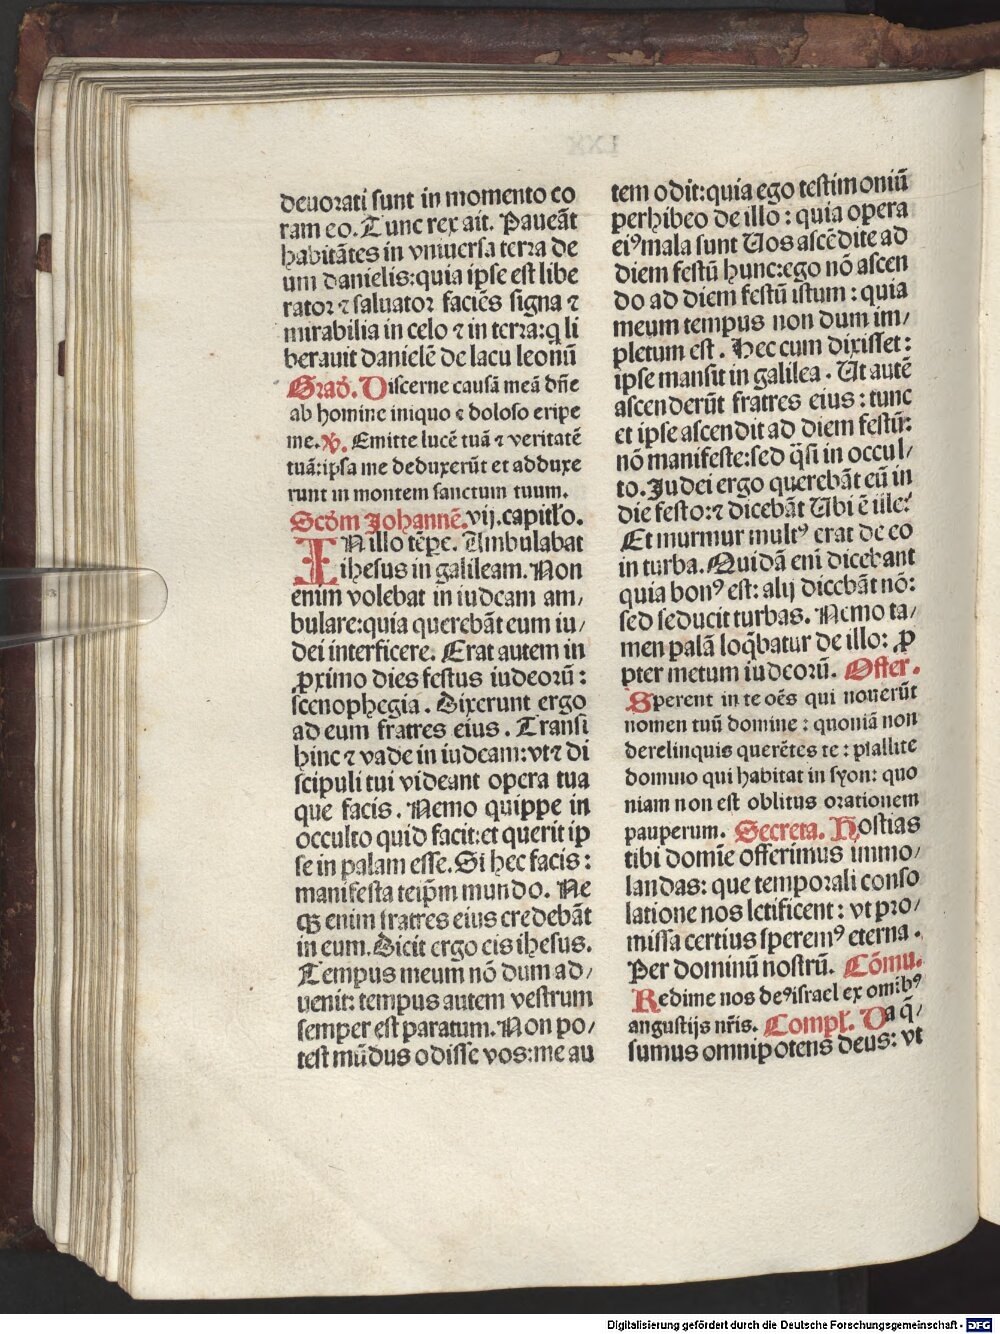 deuorati sunt in momento co
ram eo. Tunc rex ait. Paueāt
habitātes in vniuersa terra de
um danielis: quia ipse est libe
rator ⁊ saluator faciēs signa ⁊
mirabilia in celo ⁊ in terra: q̄ li
berauit danielē de lacu leonū
Grad̄. Discerne causā meā dn̄e
ab homine iniquo ⁊ doloso eripe
me. V̄. Emitte lucē tuā ⁊ veritatē
tuā: ipsa me deduxerūt et adduxe
runt in montem sanctum tuum.
Scd̄m Johannē. vij. capitl̄o.
IN illo tēpe. Ambulabat
ihesus in galileam. Non
enim volebat in iudeam am/
bulare: quia querebāt eum iu/
dei interficere. Erat autem in
ꝓximo dies festus iudeorū:
scenophegia. Dixerunt ergo
ad eum fratres eius. Transi
hinc ⁊ vade in iudeam: vt ⁊ di
scipuli tui videant opera tua
que facis. Nemo quippe in
occulto quid facit: et querit ip
se in palam esse. Si hec facis:
manifesta teip̄m mundo. Ne
qꝫ enim fratres eius credebāt
in eum. Dicit ergo eis ihesus.
Tempus meum nō dum ad/
uenit: tempus autem vestrum
semper est paratum. Non po/
test mūdus odisse vos: me au
tem odit: quia ego testimoniū
perhibeo de illo: quia opera
eiꝰ mala sunt Uos ascēdite ad
diem festū hunc: ego nō ascen
do ad diem festū istum: quia
meum tempus non dum im/
pletum est. Hec cum dixisset:
ipse mansit in galilea. Ut autē
ascenderūt fratres eius: tunc
et ipse ascendit ad diem festū:
nō manifeste: sed q̄si in occul/
to. Judei ergo querebāt eū in
die festo: ⁊ dicebāt Ubi ē ille?
Et murmur multꝰ erat de eo
in turba. Quidā eni dicebant
quia bonꝰ est: alij dicebāt nō:
sed seducit turbas. Nemo ta/
men palā loq̄batur de illo: ꝓ
pter metum iudeorū. Offer.
Sperent in te oēs qui nouerūt
nomen tuū domine: quoniā non
derelinquis querētes te: psallite
domino qui habitat in syon: quo
niam non est oblitus orationem
pauperum. Secreta. Hostias
tibi domīe offerimus immo/
landas: que temporali conso
latione nos letificent: vt pro/
missa certius speremꝰ eterna.
Per dominū nostrū. Cōmu.
Redime nos deꝰ israel ex omībꝰ
angustijs nr̄is. Compl̄. Da q̄/
sumus omnipotens deus: vt
Digitalisierung gefördert durch die Deutsche Forschungsgemeinschaft - DFG